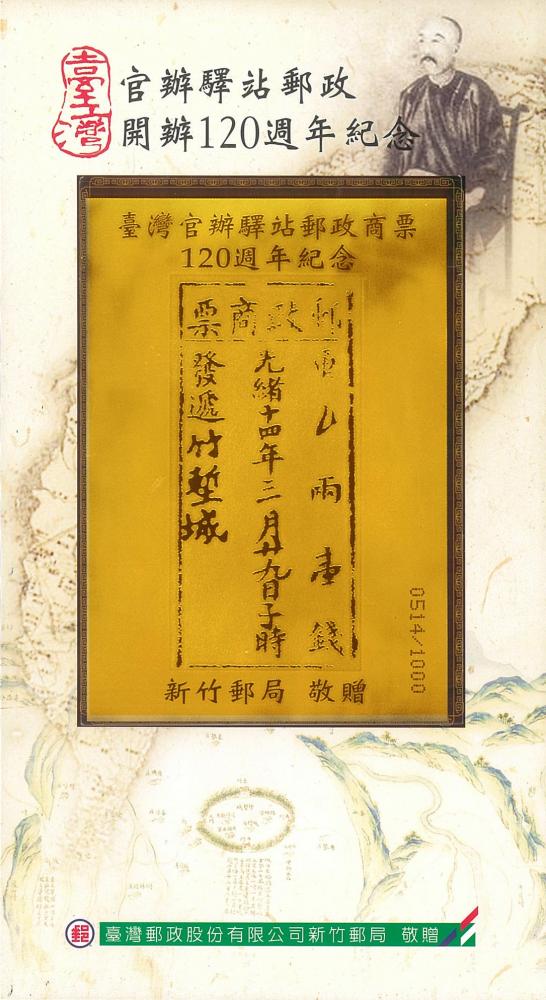 臺灣
官辦驛站郵政
開辦120週年紀念
臺灣官辦驛站郵政商票
120週年紀念
票商政郵
重 兩壹錢
光緒十四年三月廿九日子時
發遞竹塹城
0514/1000
新竹郵局 敬贈
郵
臺灣郵政股份有限公司新竹郵局 敬贈